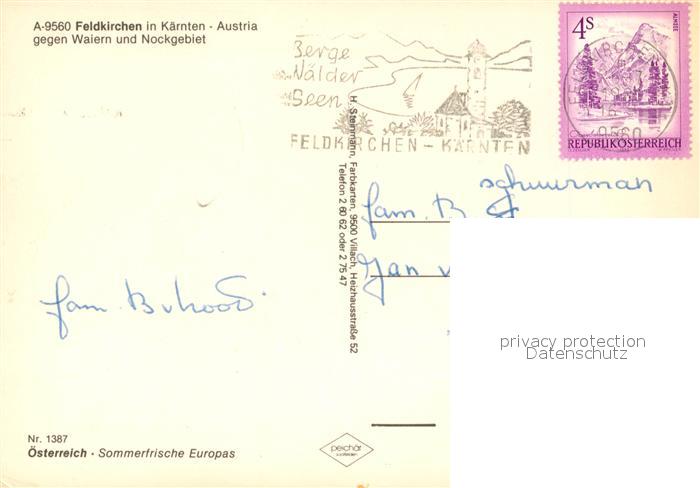 A-9560 Feldkirchen in Kärnten - Austria
gegen Waiern und Nockgebiet
Berge
Wälder
Seen
FELDKIRCHEN - KÄRNTEN
4S
ALMSEE
9560
REPUBLIK ÖSTERREICH
H. Steinmann, Farbkarten, 9500 Villach, Heizhausstraße 52
Telefon 2 60 62 oder 2 75 47
schuurman
fam. B
Jan v
fam. B
privacy protection
Datenschutz
Nr. 1387
Österreich · Sommerfrische Europas
peichär